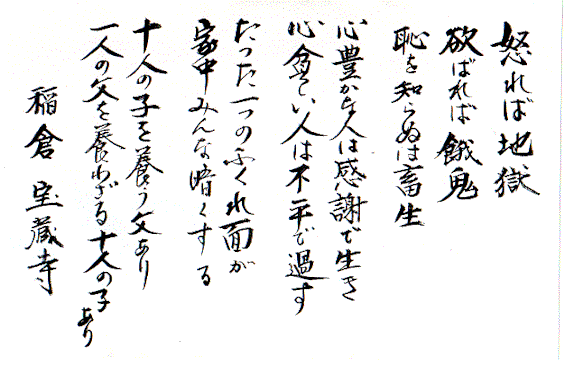 怒れば地獄
欲ばれば餓鬼
恥を知らぬは畜生
心豊かな人は感謝で生き
心貧しい人は不平で過す
たった一つのふくれ面が
家中みんな暗くする
十人の子を養う父あり
一人の父を養わざる十人の子あり
稲倉 宝蔵寺